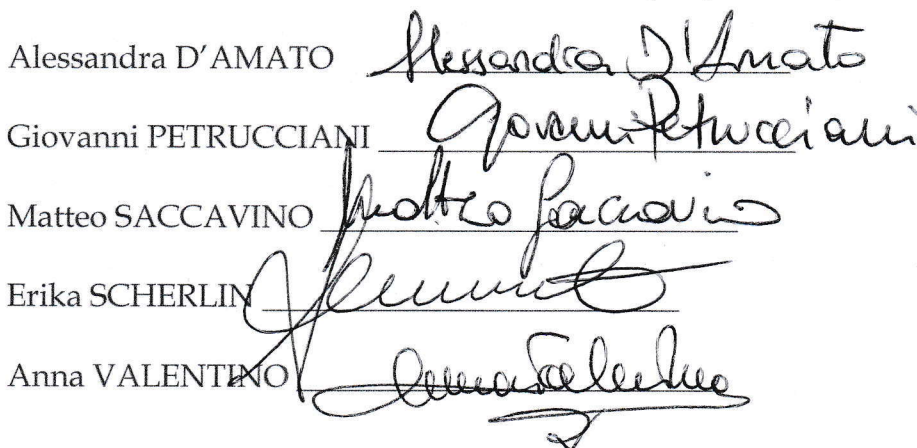 Alessandra D'AMATO Alessandra D'Amato
Giovanni PETRUCCIANI Giovanni Petrucciani
Matteo SACCAVINO Matteo Saccavino
Erika SCHERLIN
Anna VALENTINO Anna Valentino